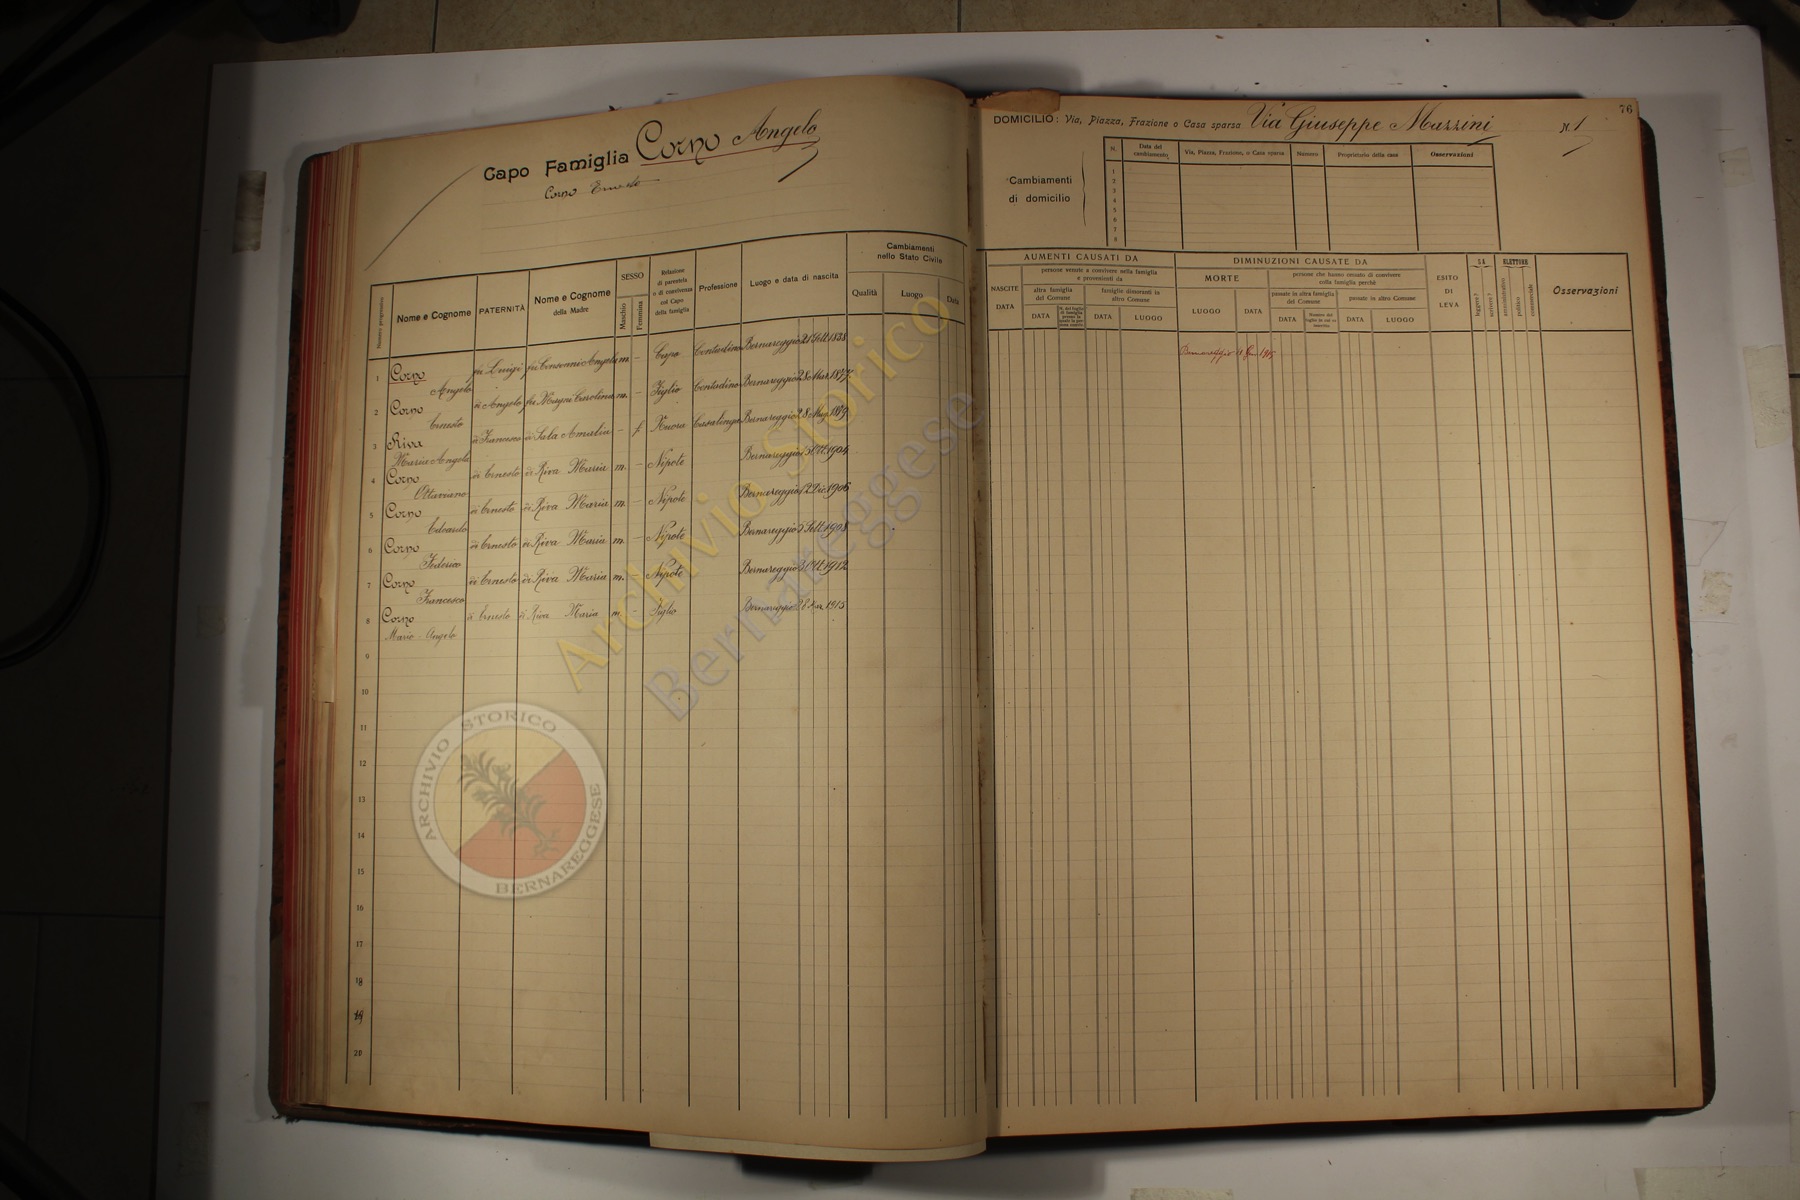 Capo Famiglia Corno Angelo
Corno Ernesto
Numero progressivo
Nome e Cognome
PATERNITÀ
Nome e Cognome
della Madre
SESSO
Maschio
Femmina
Relazione
di parentela
o di convivenza
col Capo
della famiglia
Professione
Luogo e data di nascita
Cambiamenti
nello Stato Civile
Qualità
Luogo
Data
1 Corno Angelo fu Luigi m. - Capo Contadino Bernareggio 21 Sett. 1838
2 Corno Ernesto di Angelo fu Magni Carolina m. - Figlio Contadino Bernareggio 28 Mar. 1877
3 Riva Maria Angela di Francesco di Sala Amalia - f. Nuora Casalinga Bernareggio 28 Mag.
4 Corno Ottaviano di Ernesto di Riva Maria m. - Nipote Bernareggio Ott. 1904
5 Corno Edoardo di Ernesto di Riva Maria m. - Nipote Bernareggio 12 Dic. 1906
6 Corno Federico di Ernesto di Riva Maria m. - Nipote Bernareggio Sett. 1908
7 Corno Francesco di Ernesto di Riva Maria m. - Nipote Bernareggio Ott. 1912
8 Corno Mario Angelo di Ernesto di Riva Maria m. - Figlio Bernareggio 28 Mar. 1915
9
10
11
12
13
14
15
16
17
18
19
20
76
DOMICILIO: Via, Piazza, Frazione o Casa sparsa Via Giuseppe Mazzini N. 1
Cambiamenti
di domicilio
N.
Data del
cambiamento
Via, Piazza, Frazione, o Casa sparsa
Numero
Proprietario della casa
Osservazioni
1
2
3
4
5
6
7
8
AUMENTI CAUSATI DA
NASCITE
DATA
persone venute a convivere nella famiglia
e provenienti da
altra famiglia
del Comune
DATA
famiglie dimoranti in
altro Comune
DATA
LUOGO
DIMINUZIONI CAUSATE DA
MORTE
LUOGO
DATA
persone che hanno cessato di convivere
colla famiglia perchè
passate in altra famiglia
del Comune
DATA
Numero del
foglio in cui va
inscritta
passate in altro Comune
DATA
LUOGO
ESITO
DI
LEVA
SA
leggere?
scrivere?
ELETTORE
amministrativo
politico
commerciale
Osservazioni
Bernareggio 1915
Archivio Storico
Bernareggese
ARCHIVIO STORICO
BERNAREGGESE